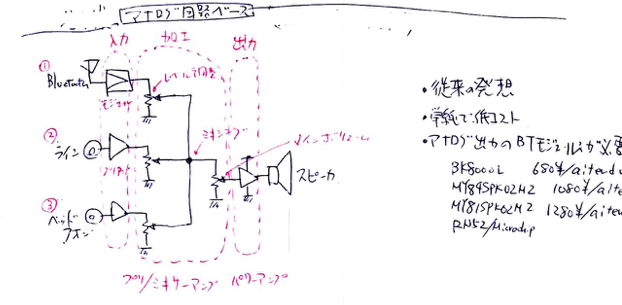 アナログ回路ベース
入力
加工
出力
①
Bluetooth
モジュール
レベル調整
②
ライン
ミキシング
メインボリューム
スピーカ
③
ヘッド
フォン
プリ/ミキサーアンプ
パワーアンプ
・従来の発想
・単純で低コスト
・アナログ出力のBTモジュールが必要
BK8000L 680¥/aitendo
1080¥/aite
1280¥/aite
RN52/Microchip